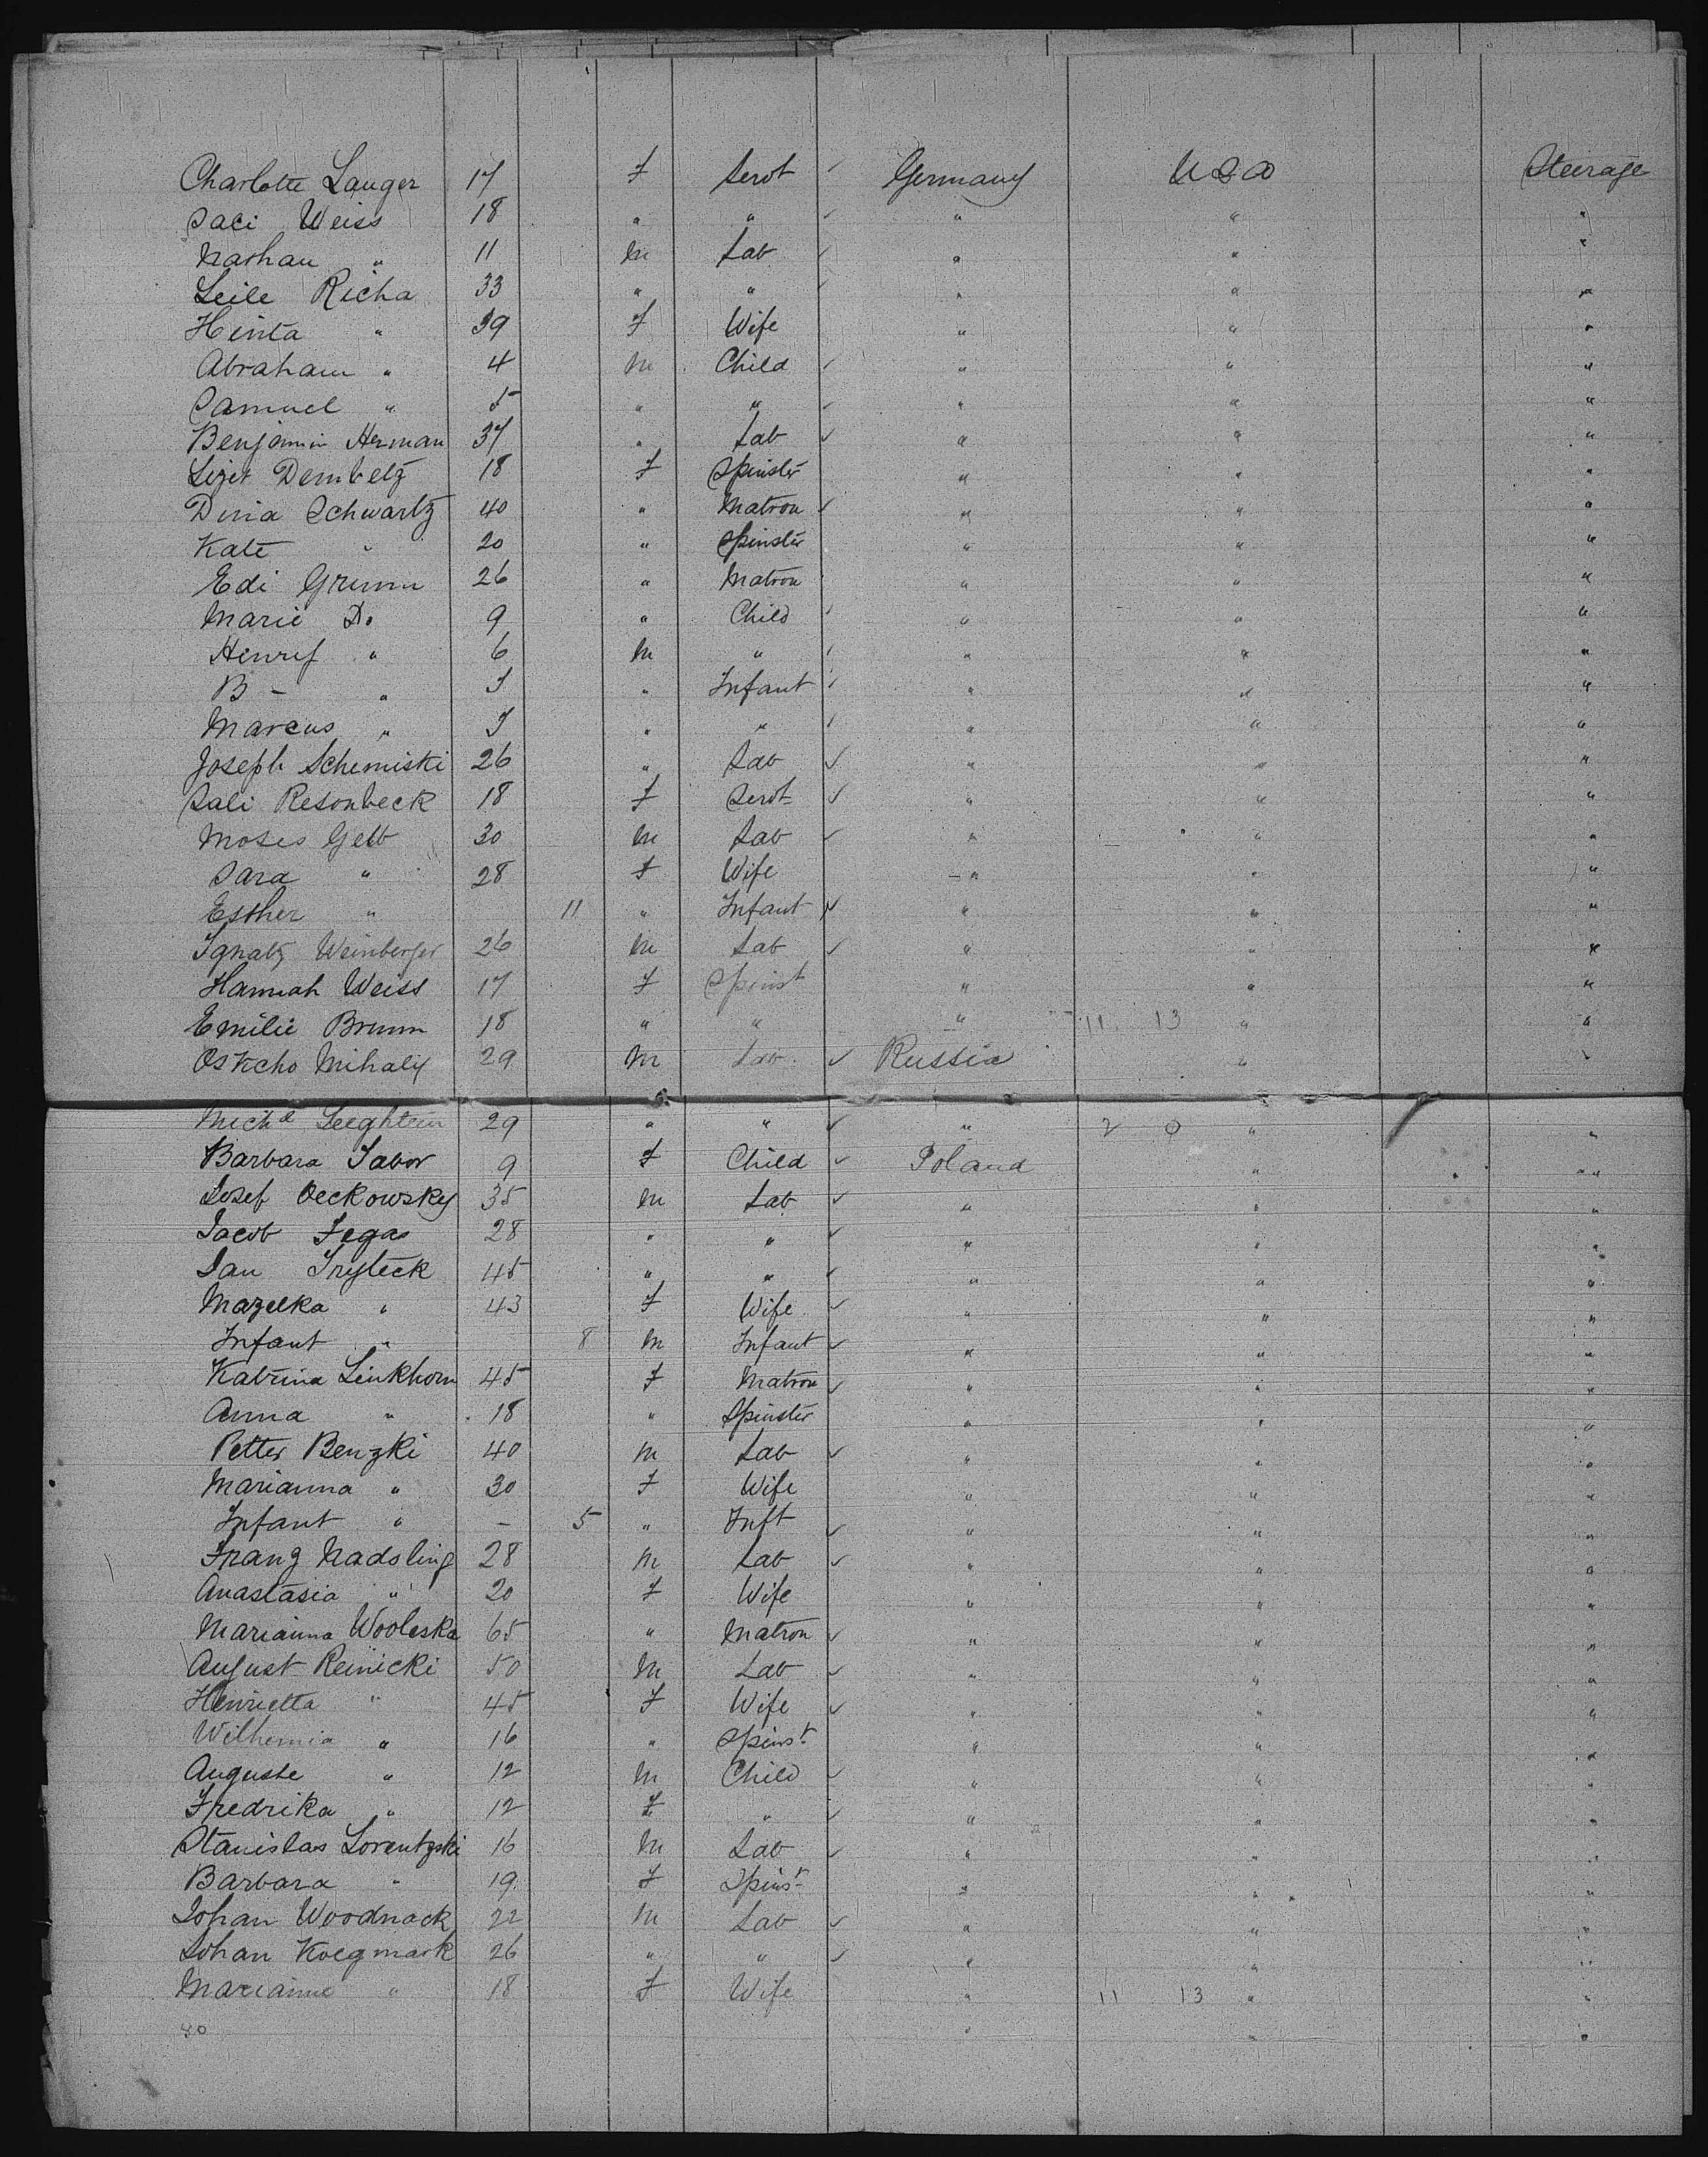 Charlotte Langer 17 F Servt Germany USA Steerage
Sali Weiss 18 " " " " "
Nathan " 11 M Lab " " "
Leile Richa 33 " " " " "
Hinta " 39 F Wife " " "
Abraham " 4 M Child " " "
Samuel " 5 " " " " "
Benjamin Herman 37 " Lab " " "
Lizet Dembelz 18 F Spinster " " "
Dina Schwartz 40 " Matron " " "
Kate " 20 " Spinster " " "
Edi Grunn 26 " Matron " " "
Marie Do 9 " Child " " "
Henry " 6 M " " " "
B - " " Infant " " "
Marcus " " " " " "
Joseph Schemiski 26 " Lab " " "
Sali Resonbeck 18 F Servt " " "
Moses Gelb 30 M Lab " " "
Sara " 28 F Wife " " "
Esther " 11 " Infant " " "
Ignatz Weinberger 26 M Lab " " "
Hannah Weiss 17 F Spinst " " "
Emilie Brunn 18 " " " 11 13 " "
Oskcho Mihaly 29 M Lab Russia " "
Michl Leeghtein 29 " " " 2 0 " "
Barbara Tabor 9 F Child Poland " "
Josef Oeckowsky 35 M Lab " " "
Jacob Fegas 28 " " " " "
Jan Tryteck 45 " " " " "
Mazelka " 43 F Wife " " "
Infant " 8 M Infant " " "
Katrina Linkhorn 45 F Matron " " "
Anna " 18 " Spinster " " "
Petter Benzki 40 M Lab " " "
Marianna " 30 F Wife " " "
Infant " - 5 " Inft " " "
Franz Nadsling 28 M Lab " " "
Anastasia " 20 F Wife " " "
Marianna Wooleska 65 " Matron " " "
August Reinicki 50 M Lab " " "
Henrietta " 45 F Wife " " "
Wilhemia " 16 " Spinst " " "
Auguste " 12 M Child " " "
Fredrika " 12 F " " " "
Stanislas Lorentzski 16 M Lab " " "
Barbara " 19 F Spinst " " "
Johan Woodnack 22 M Lab " " "
Johan Koegmark 26 " " " " "
Marianne " 18 F Wife " 11 13 " "
50 " " "